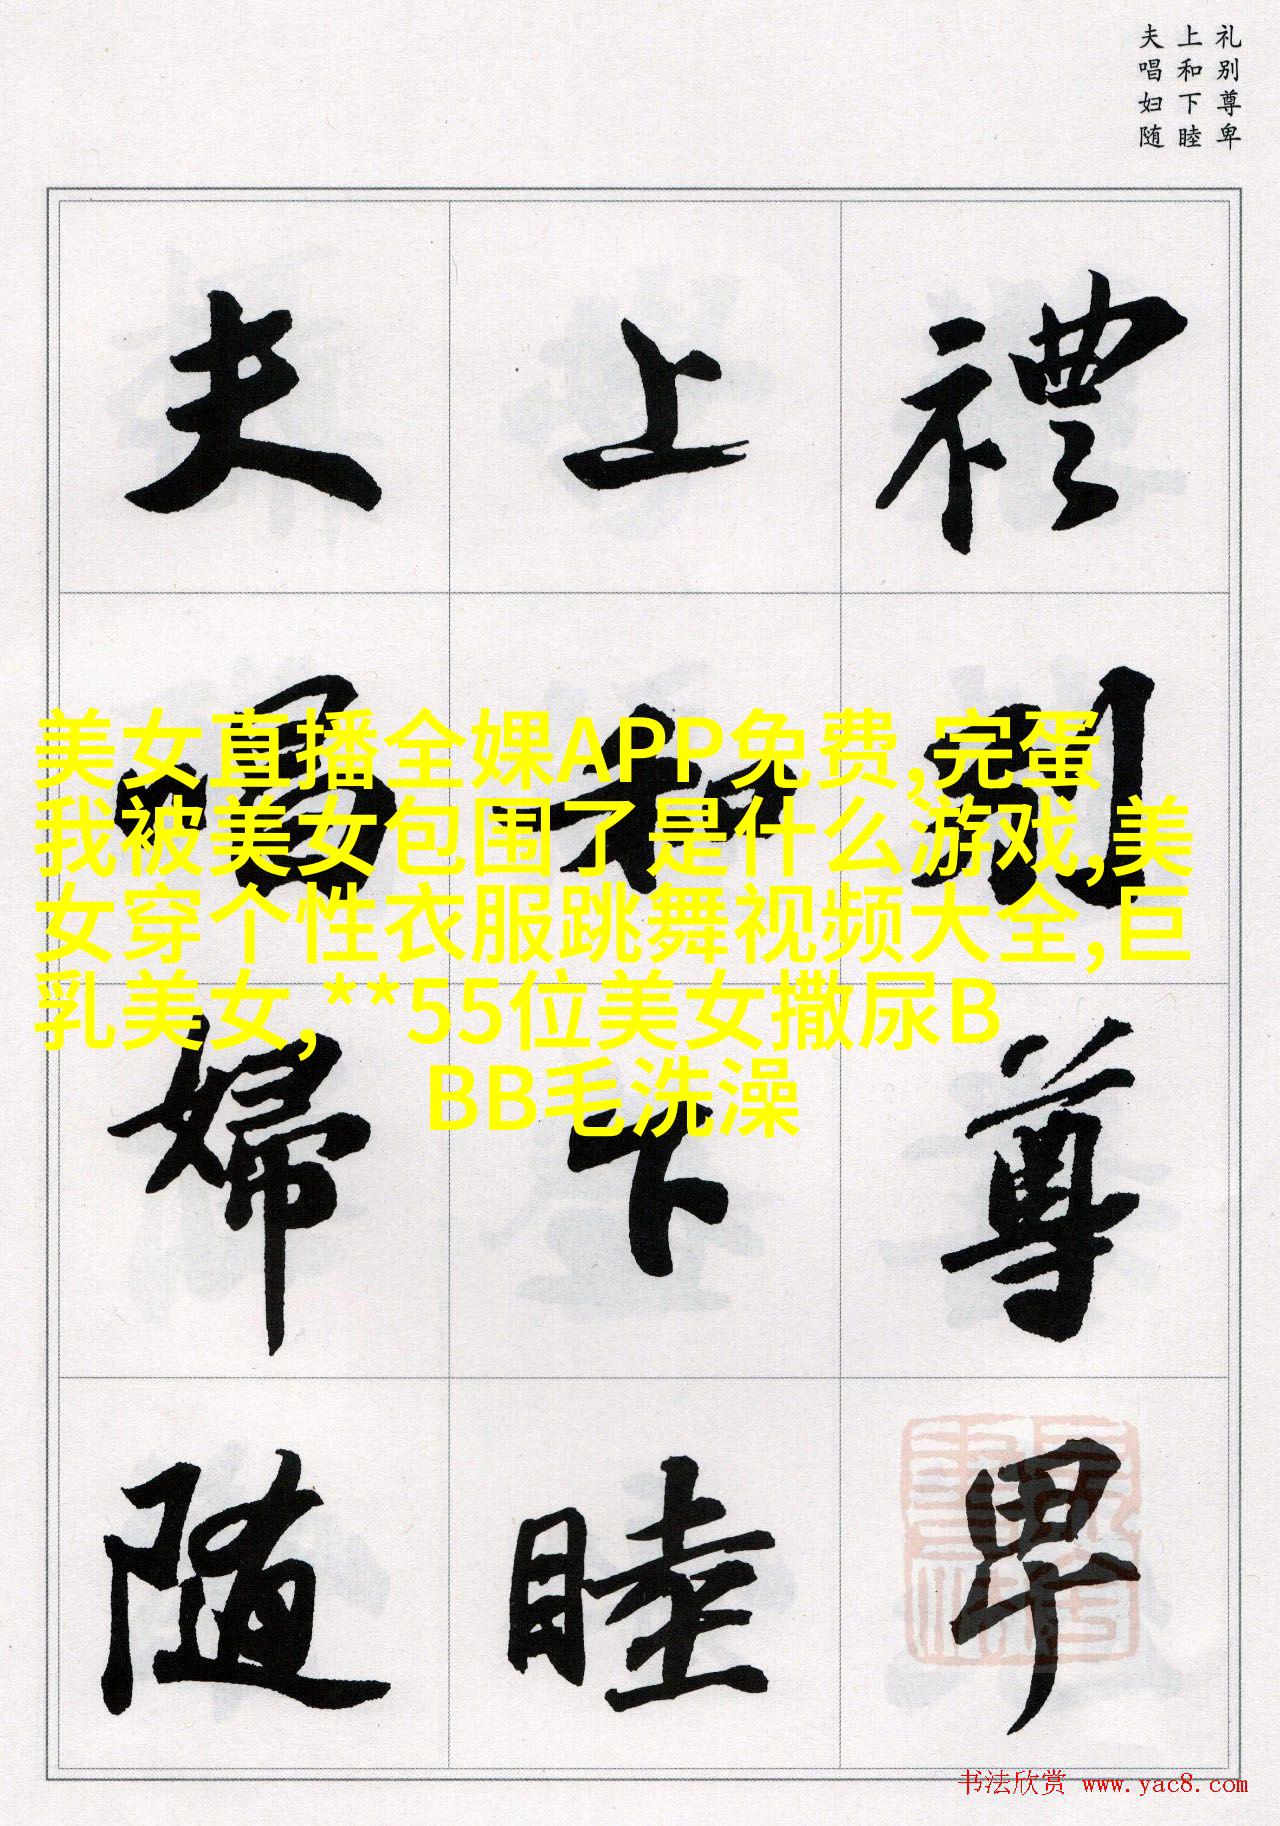 礼别尊卑
上和下睦
夫唱妇随
禮別尊卑
上和下睦
夫唱婦随
美女直播全婐APP免费,完蛋
我被美女包围了是什么游戏,美
女穿个性衣服跳舞视频大全,巨
乳美女,**55位美女撒尿B
BB毛洗澡
书法欣赏 www.yac8.com